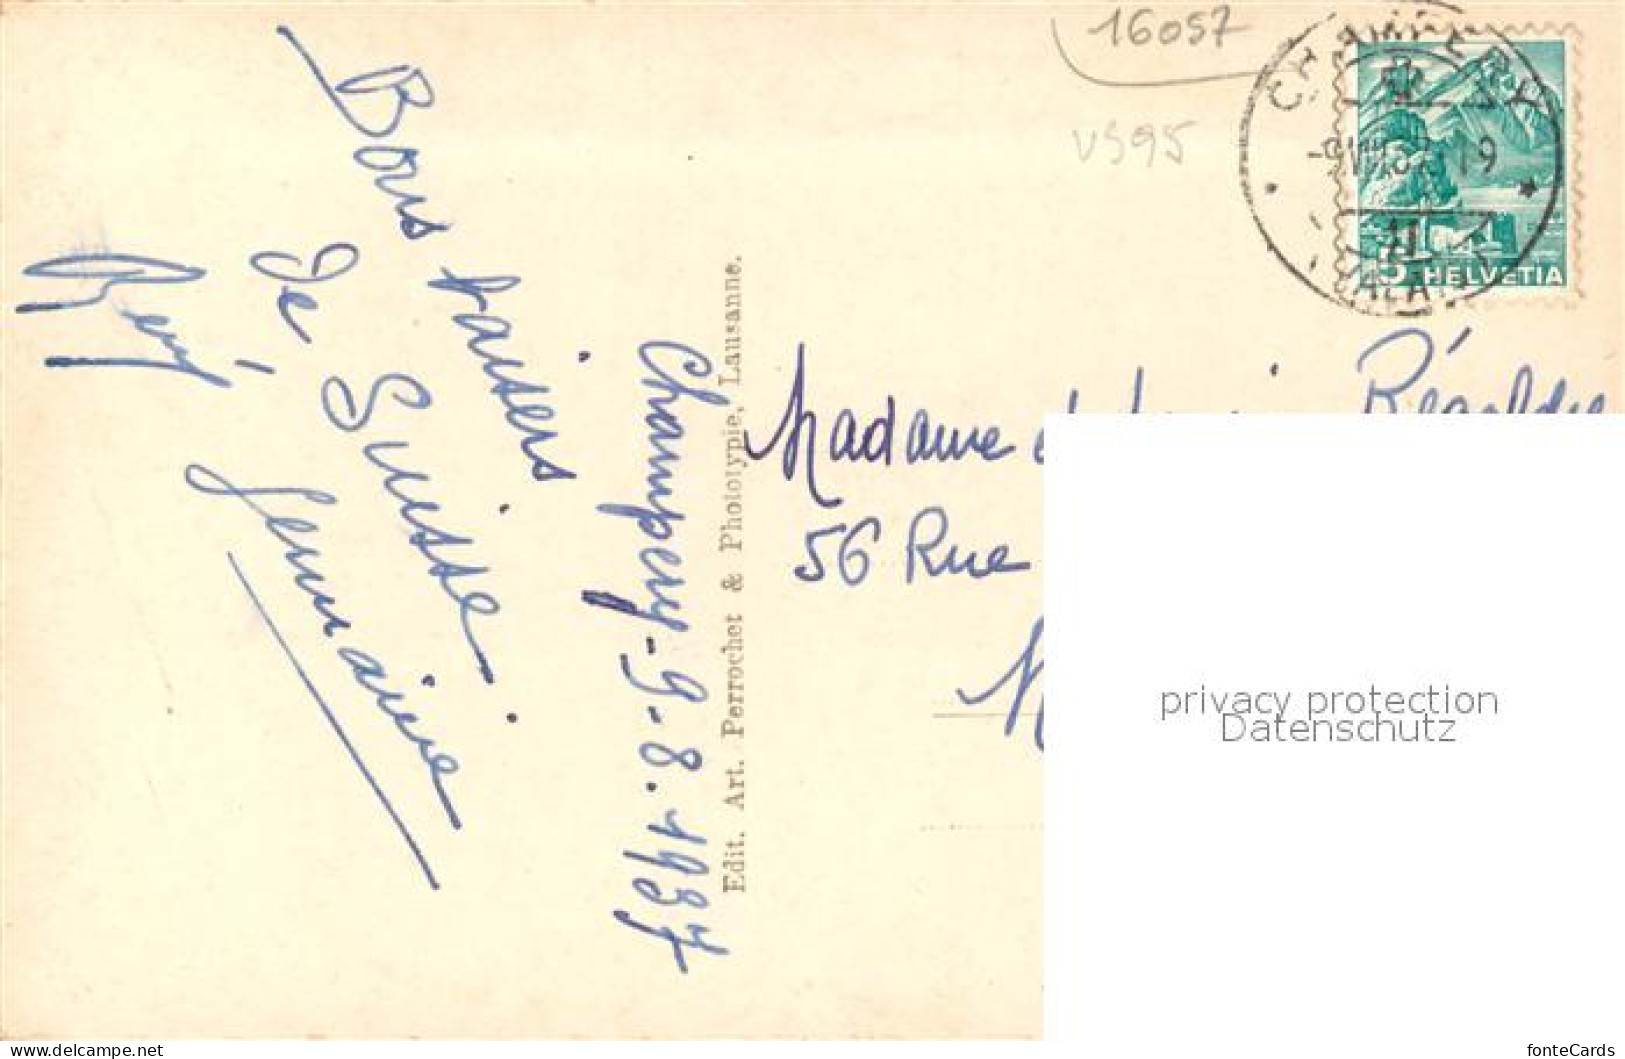 16057
VS95
CHAMPERY
-9.VIII.37.19
(VALAIS)
5 HELVETIA
Bons baisers
de Suisse.
Rémy, Germaine
Champery - 9. 8. 1937
Edit. Art. Perrochet & Phototypie, Lausanne.
Madame
56 Rue
privacy protection
Datenschutz
www.delcampe.net
fonteCards